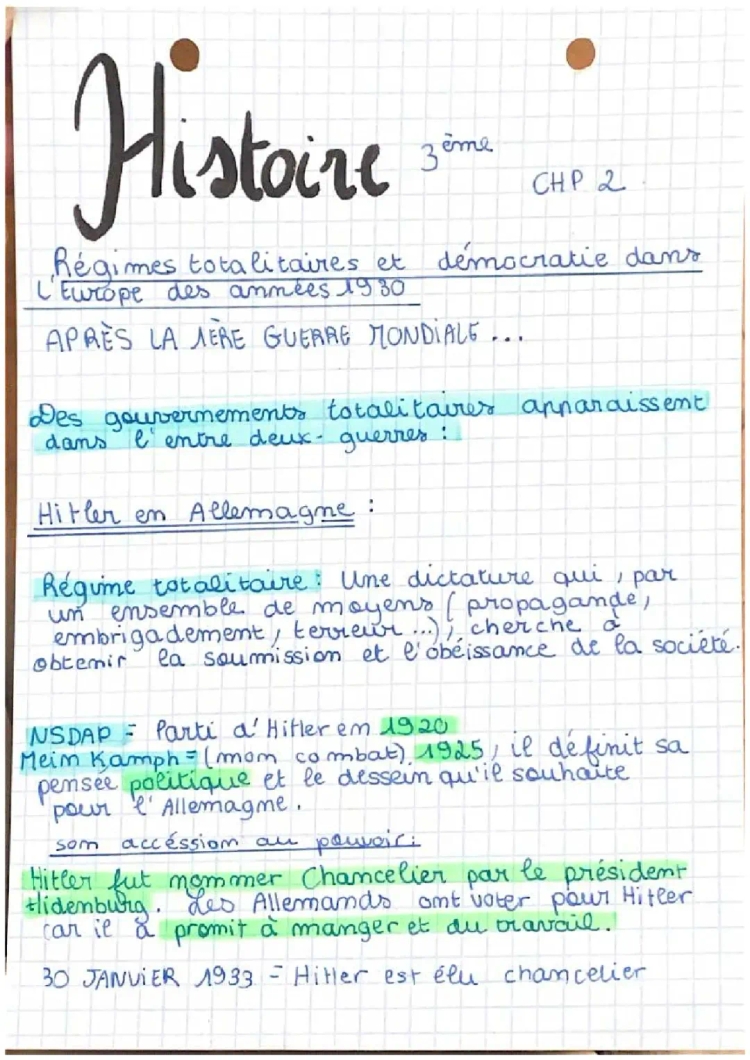 Histoire 3ème
CHP 2
Régimes totalitaires et démocratie dans
l'Europe des années 1930
APRÈS LA 1ÈRE GUERRE MONDIALE ...
Des gouvernements totalitaires apparaissent
dans l'entre deux-guerres :
Hitler en Allemagne :
Régime totalitaire : Une dictature qui, par
un ensemble de moyens (propagande,
embrigadement, terreur ...), cherche à
obtenir la soumission et l'obéissance de la société.
NSDAP = Parti d'Hitler en 1920
Mein Kamph = (mon combat) 1925, il définit sa
pensée politique et le dessein qu'il souhaite
pour l'Allemagne.
son accéssion au pouvoir :
Hitler fut nommer Chancelier par le président
Hidenburg. Les Allemands ont voter pour Hitler
car il a promit à manger et du travail.
30 JANVIER 1933 = Hitler est élu chancelier